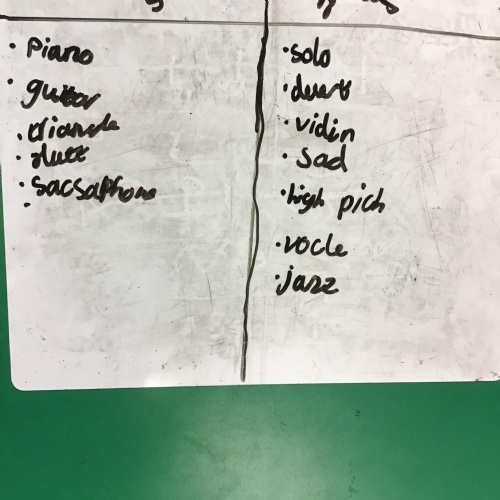 piano
guitar
triangle
flute
sacsaphone
solo
duert
violin
sad
high pich
rocle
jazz